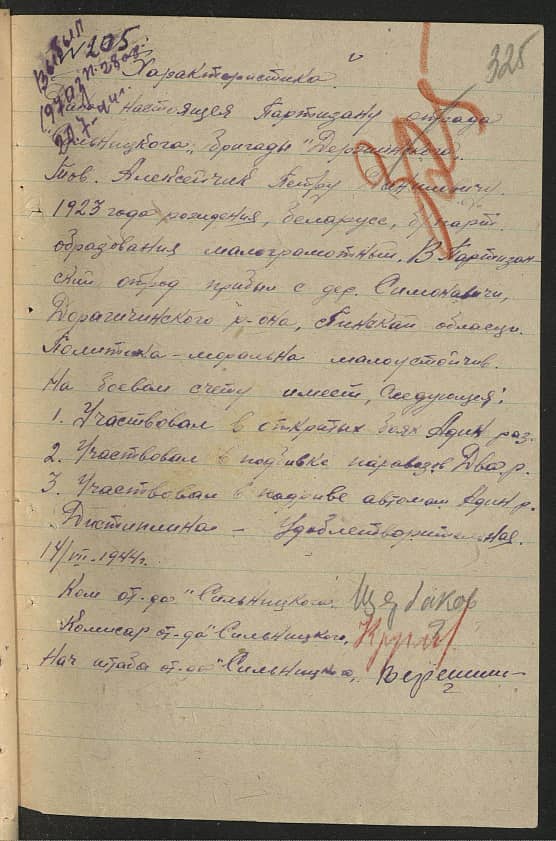 325
205
205
Характеристика
настоящея Партизану отряда
Сильницкого, бригады "Держинского,
Тов. Алексейчик Петру
1923 года рождения, беларусс, б/парт.
образования малограмотный. В Партизан-
ский отряд прибыл с дер. Симонавичи,
Дорагичинского р-она, Пинской области.
Политика-морально малоустойчив.
На боевом счету имеет, следующея:
1. Участвовал в открытых боях Адин раз.
2. Участвовал в подрывке паравазов Два р.
3. Участвовал в подрыве автомаш. Адин р.
Дистиплина - удовлетворительная.
14/VII-1944г.
Ком от-да "Сильницкого, Щербаков
Комисар от-да "Сильницкого,
Нач штаба от-да "Сильницкого,